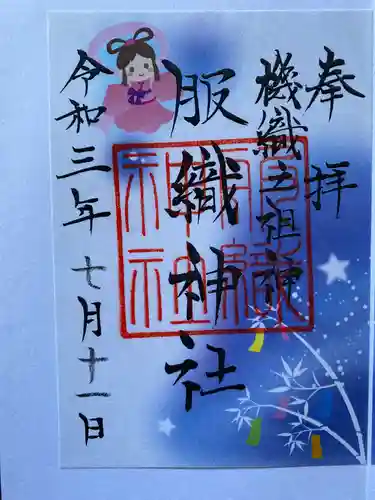 奉拝
機織之祖神
服織神社
令和三年七月十一日